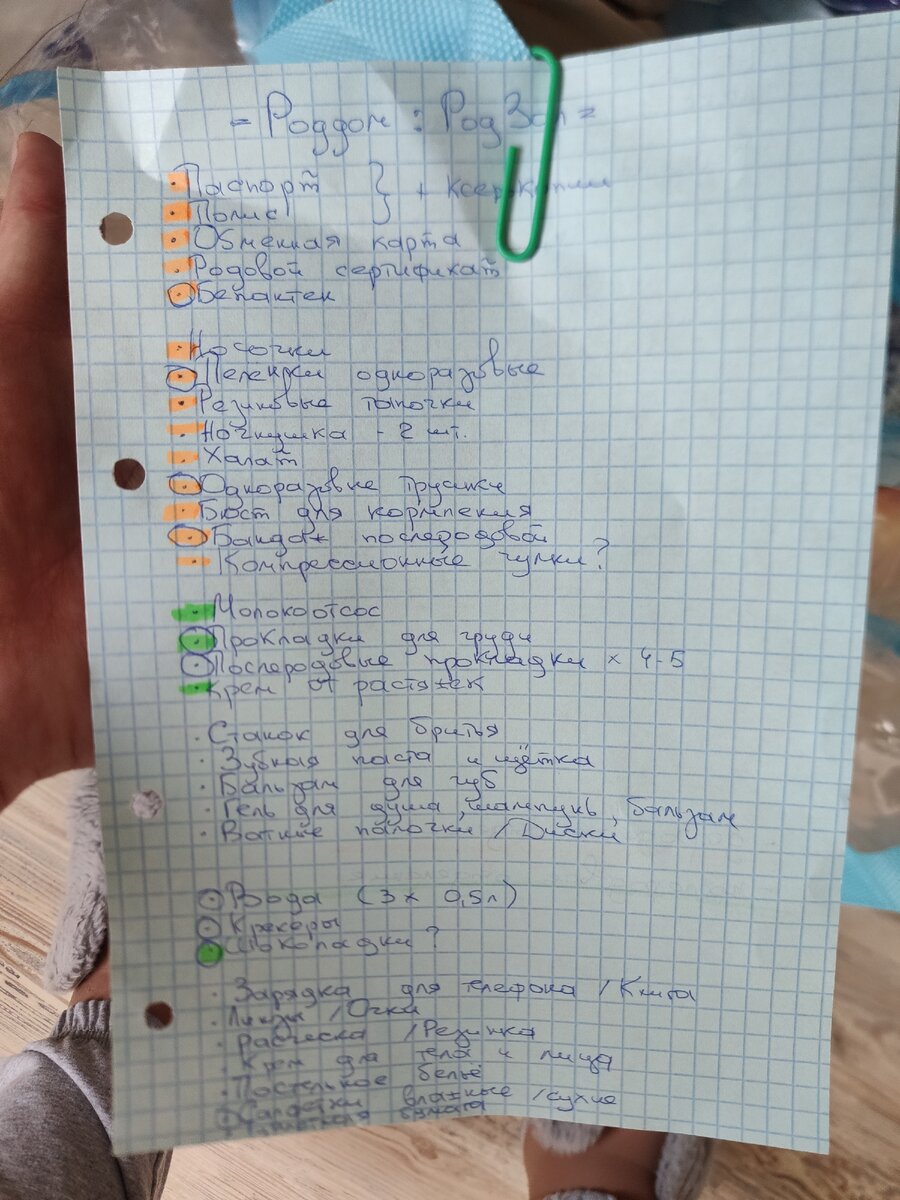 = Роддом : РодЗал =
· Паспорт } + ксерокопии
· Полис
· Обменная карта
· Родовой сертификат
· Бепантен
· Носочки
· Пеленки одноразовые
· Резиновые тапочки
· Ночнушка - 2 шт.
· Халат
· Одноразовые трусики
· Бюст для кормления
· Бандаж послеродовой
· Компрессионные чулки?
· Молокоотсос
· Прокладки для груди
· Послеродовые прокладки × 4-5
· Крем от растяжек
· Станок для бритья
· Зубная паста и щётка
· Бальзам для губ
· Гель для душа, шампунь, бальзам
· Ватные палочки / Диски
· Вода (3 × 0,5л)
· Крекеры
· Шоколадки?
· Зарядка для телефона / Книга
· Линзы / Очки
· Расческа / Резинка
· Крем для тела и лица
· Постельное бельё
· Салфетки влажные / сухие
· Туалетная бумага